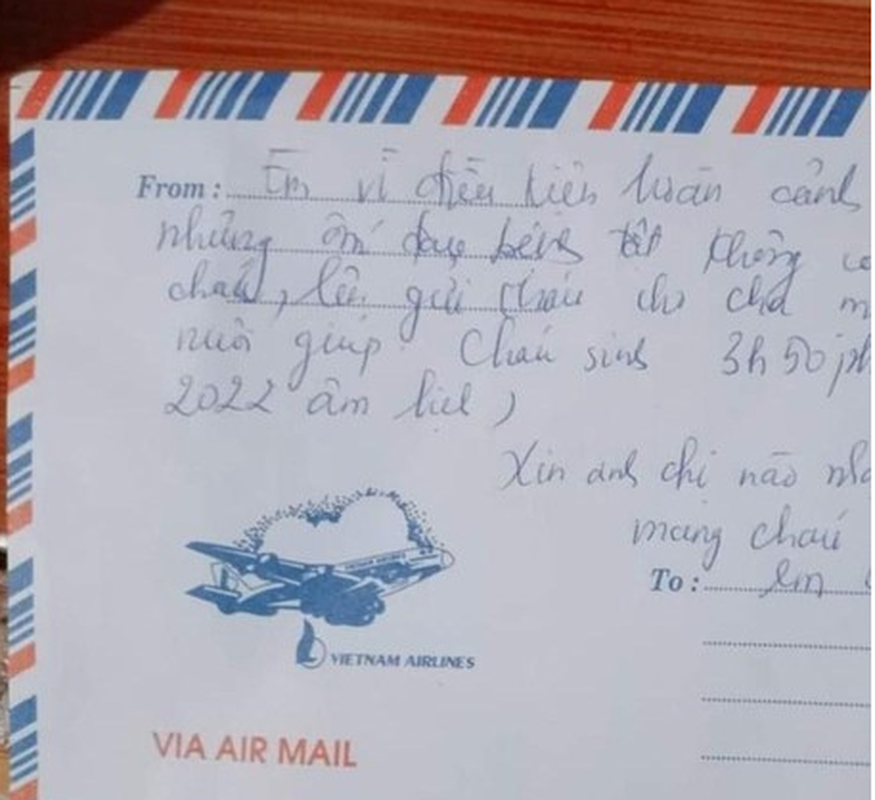 From : Em vì điều kiện hoàn cảnh
những ốm đau bệnh tật không
cháu, lên gửi cháu cho chả
nuôi giúp. Cháu sinh 3h50ph
2022 âm lịch )
Xin anh chị nào
mang cháu
To : em
VIETNAM AIRLINES
VIA AIR MAIL